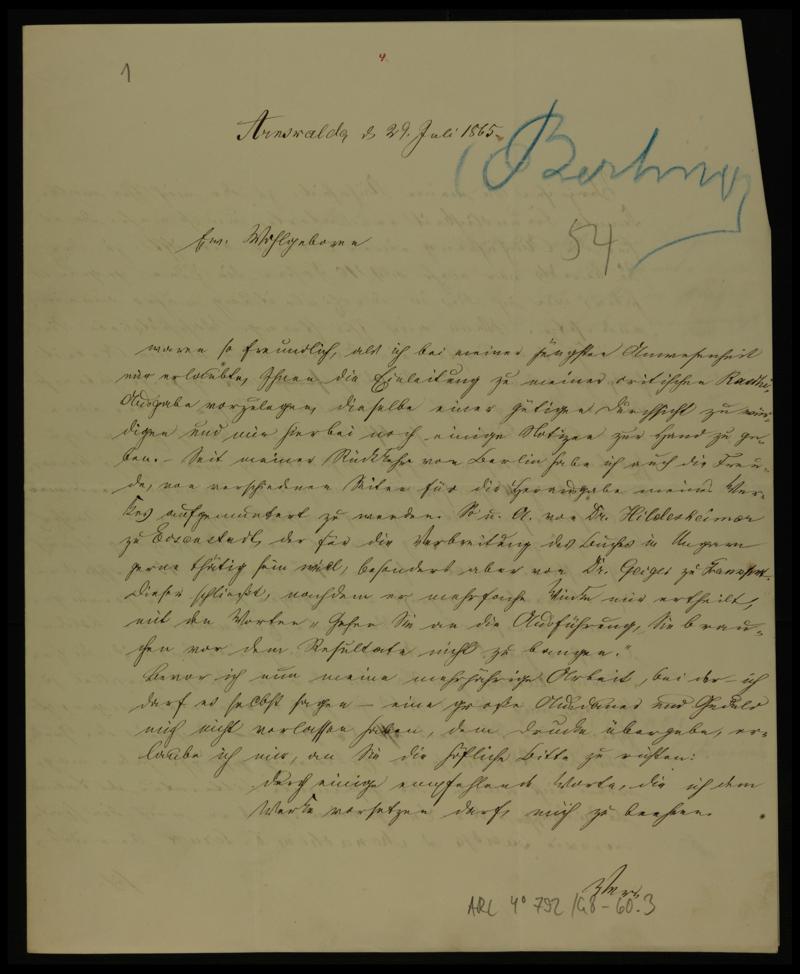 4.
1
Arnswalde d 29. Juli 1865.
Berliner
54
Ew. Wohlgeboren
waren so freundlich, als ich bei meiner jüngsten Anwesenheit
mir erlaubte, Ihnen die Einleitung zu meiner critischen Raschi-
Ausgabe vorzulegen, dieselbe einer gütigen Durchsicht zu wür-
digen und mir hierbei noch einige Notizen zur Hand zu ge-
ben. – Seit meiner Rückkehr von Berlin habe ich auch die Freu-
de, von verschiednen Seiten für die Herausgabe meines Wer-
kes aufgemuntert zu werden. So u. A. von Dr. Hildesheimer
zu Eisenstadt, der für die Verbreitung des Buches in Ungarn
gerne thätig sein will, besonders aber von Dr. Geiger zu Frankfurt.
Dieser schliesst, nachdem er mehrfache Winke mir ertheilt,
mit den Worten „Gehen Sie an die Ausführung, Sie brau-
chen vor dem Resultate nicht zu bangen."
Bevor ich nun meine mehrjährige Arbeit, bei der – ich
darf es selbst sagen – eine große Ausdauer und Geduld
mich nicht verlassen haben, dem Drucke übergebe, er-
laube ich mir, an Sie die höfliche Bitte zu richten:
durch einige empfehlende Worte, die ich dem
Werke vorsetzen darf, mich zu beehren.
ARC 4° 792 /G8-60.3